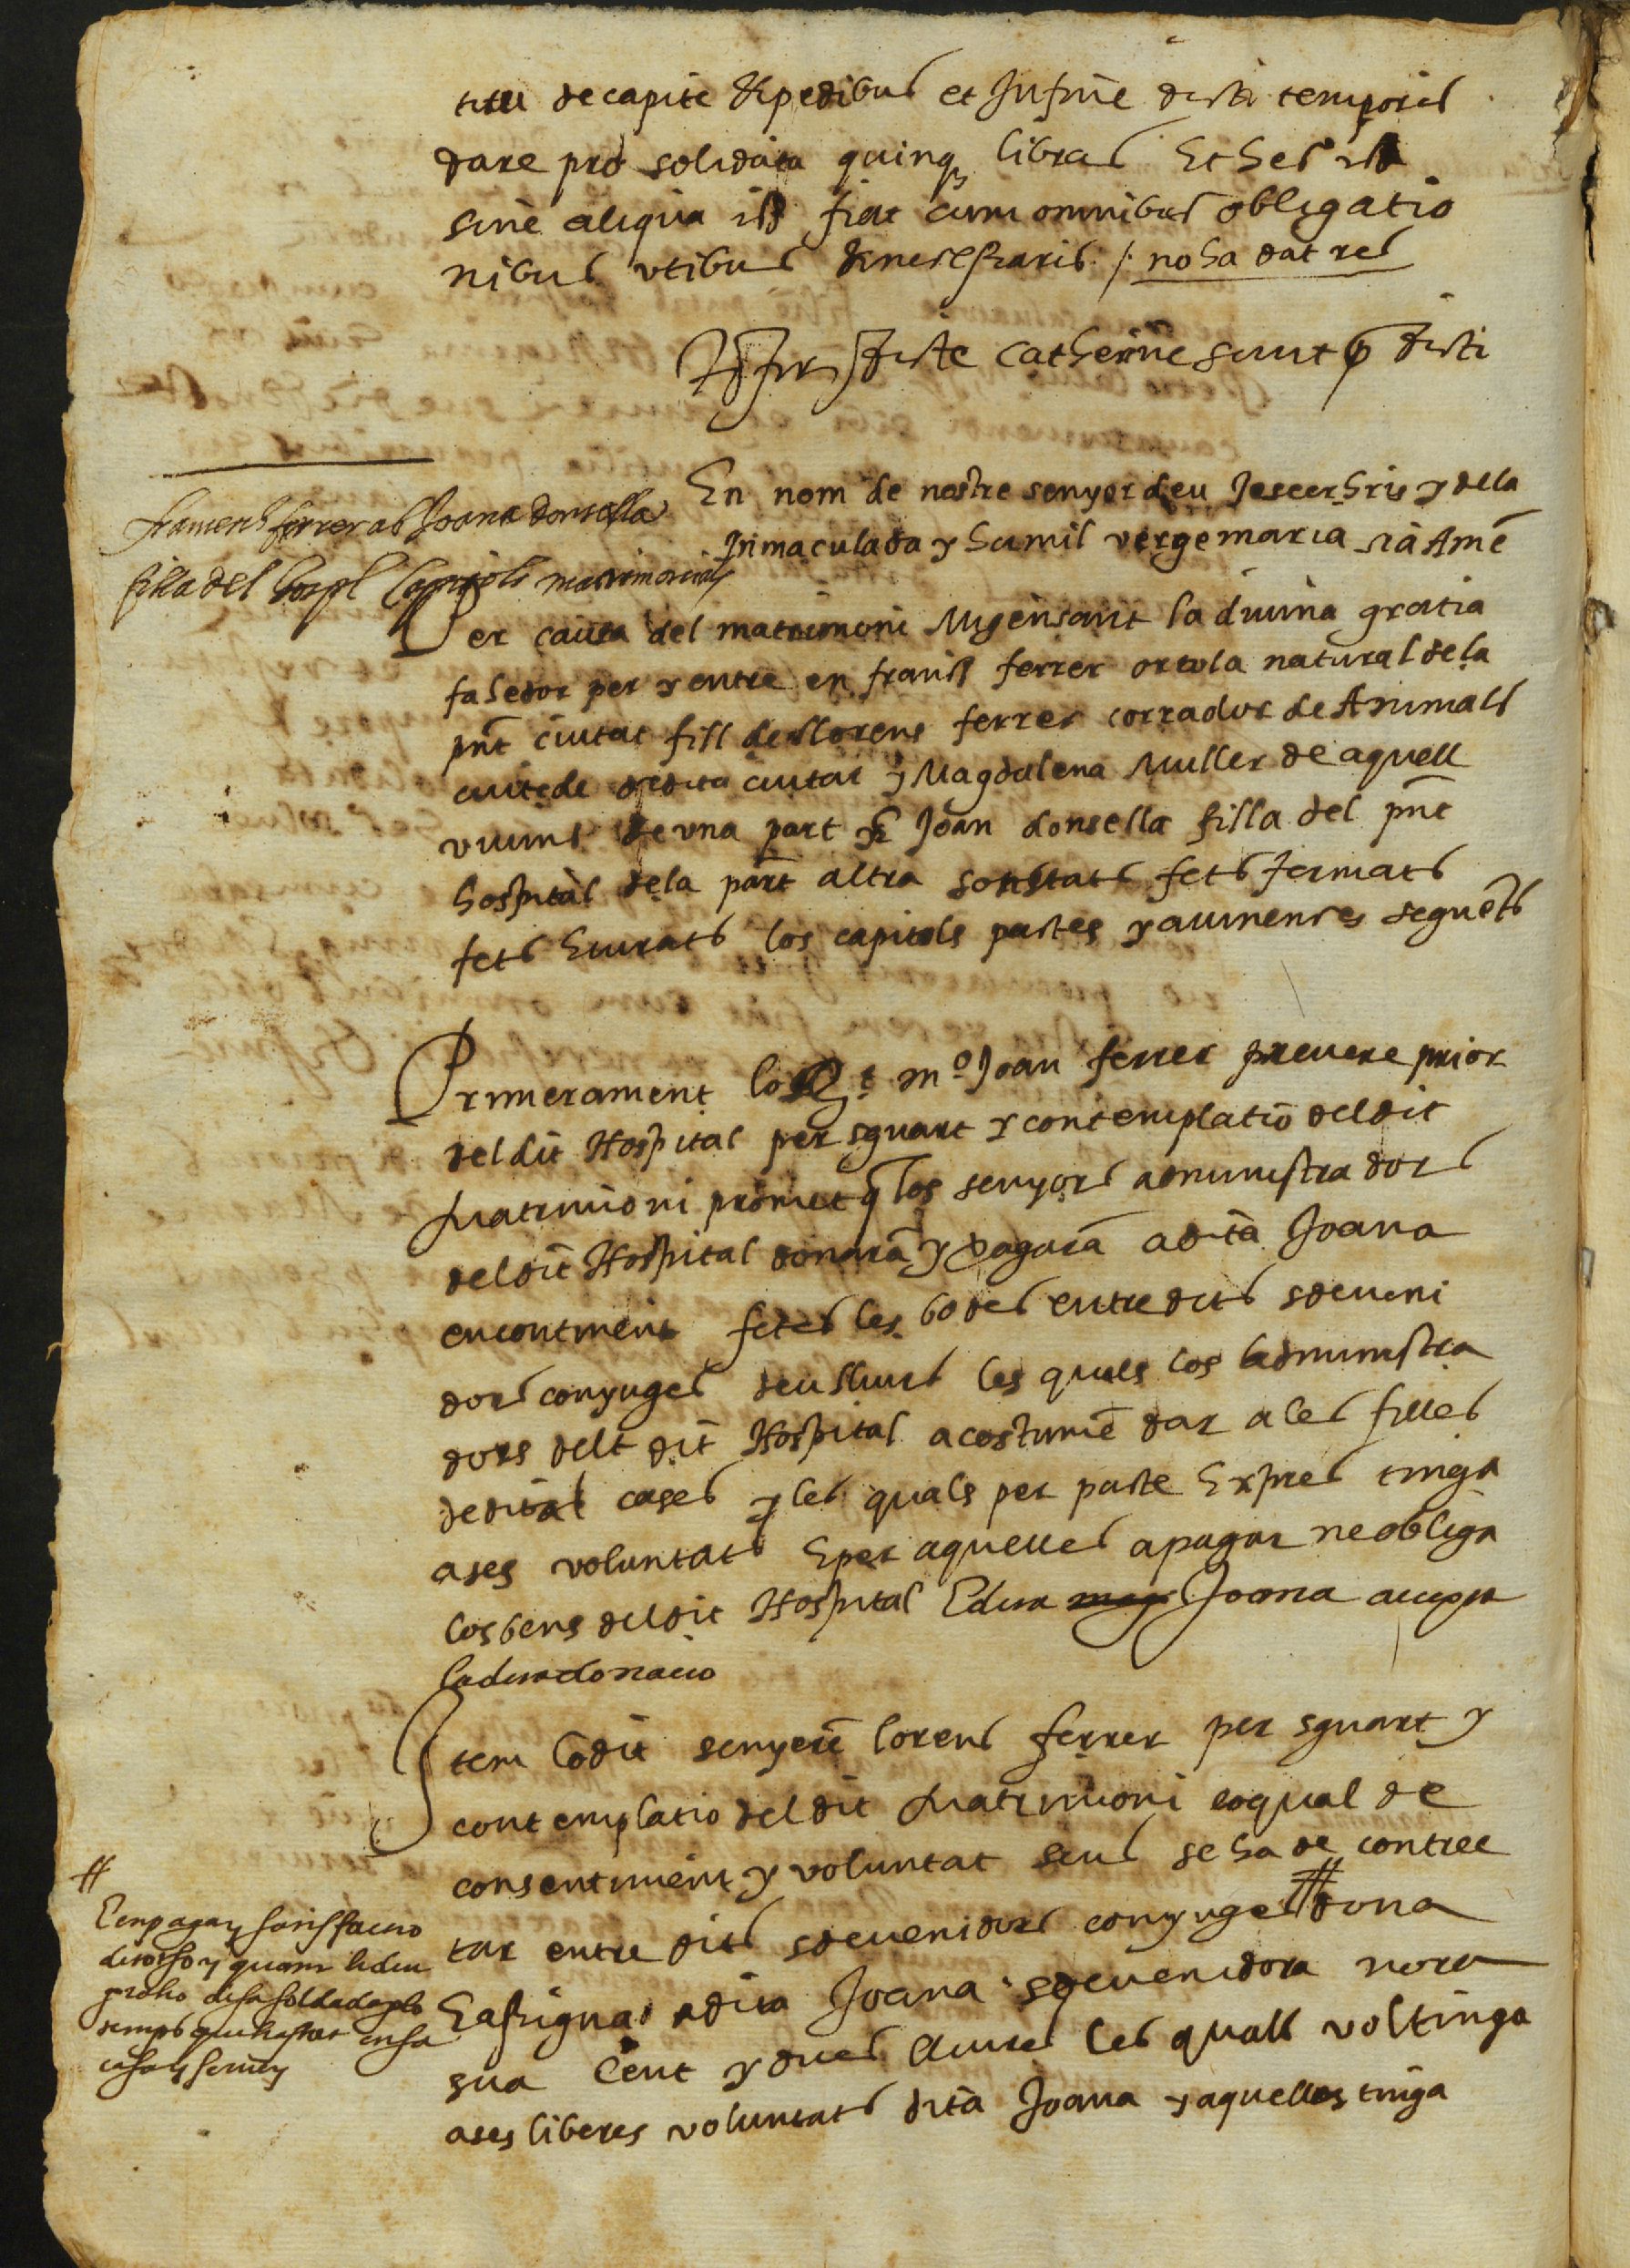 de capite & pedibus et In fine dicti temporis
dare pro solidata quinq libras Et hec
sine aliqua fiat cum omnibus obligatio
nibus utibus & necessaris /. no ha dat res
dicte Catherine sunt dicti
En nom de nostre senyor deu Jesucrhist y dela
Inmaculada y humil verge maria sia Ame
francesch ferrer ab Joana donsella
filla del hospl Capitols matrimonials
Per causa del matrimoni Migensant la divina gratia
fahedor per y entre en franss ferrer ortola natural dela
pnt ciutat fill de llorens ferrer corrador de Animals
ciutede de dita ciutat y Magdalena Muller de aquell
vivint de una part y Joan donsella filla del pnt
hospital dela part altra son stats fets fermats
fets E iurats los capitols pactes y avinences seguets
Primerament lo R.t mº Joan ferrer prevere prior
del dit Hospital per sguart y contemplatio del dit
Matrimoni promet q los senyors administradors
del dit Hospital donara y pagara a dita Joana
encontinent fetes les bodes entre dits sdeveni
dors conyuges deu lliures les quals los administra
dors delt dit Hospital acostume dar a les filles
de dital cases y les quals per pacte Expres tinga
a ses voluntats E per aquelles a pagar ne obliga
los bens del dit Hospital E dita Joana accepta
la dita donacio
Item lo dit senyer lorens ferrer per sguart y
contemplatio del dit Matrimoni loqual de
consentiment y voluntat seus se ha de contrec
tar entre dits sdevenidors conyuges # dona
E assigna a dita Joana sdevenidora nora
sua Cent y dues liures les quals vol tinga
a ses liberes voluntats dita Joana y aquelles tinga
#
E en paga y satisffactio
de tot so y quant li deu
de sa soldada
temps que ha stat en sa
casa y servey